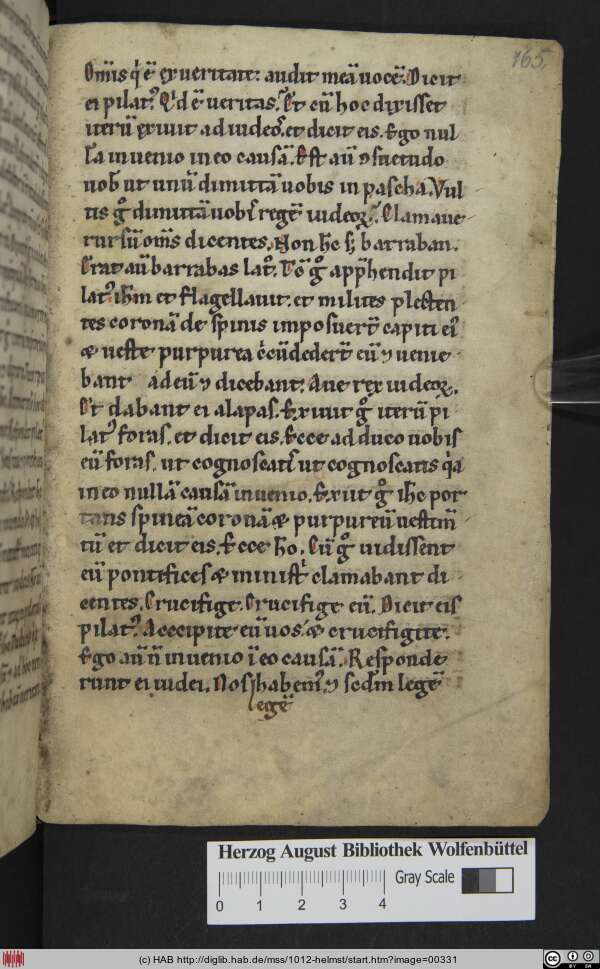 165
Om̅is q̇ ē ex ueritate: audit meā uocē. Dicit
ei pilatꝰ. Qͥd ē ueritas. Et cū hoc dixisset
iterū exiuit ad iudeoꝰ. et dicit eis. Ego nul
lā inuenio in eo causā. Est aū ꝯsuetudo
uob̅ ut unū dimittā uobis in pascha. Vul
tis gͦ dimittā uobꝭ regē iudeoꝝ. Clamaue
rt̅ rursū om̅s dicentes. Non hc̅ sꝫ barraban.
Erat aū barrabas latͦ. Tc̅ gͦ app̅hendit pi
latꝰ ihm̅ et flagellauit. et milites plecten
tes coronā de spinis imposuert̅ capiti eiꝰ
æ ueste purpurea cͥcūdedert̅ eū ⁊ uenie
bant ad eū ⁊ dicebant: Aue rex iudeoꝝ.
Et dabant ei alapas. Exiuit gͦ iterū pi
latꝰ foras. et dicit eis. Ecce adduco uobis
eū foras. ut cognoscatꝭ ut cognoscatis qͥa
in eo nullā causā inuenio. Exiit gͦ ihc̅ por
tans spineā coronā æ purpureū uestim̅
tū et dicit eis. Ecce ho̅. Cū gͦ uidissent
eū pontifices æ ministͥ clamabant di
centes. Crucifige. Crucifige eū. Dicit eis
pilatꝰ. Accipite eū uos. æ crucifigite.
Ego aū n̅ inuenio ī eo causā. Responde
runt ei iudei. Nos habemꝰ. ⁊ scd̅m legē
legē
Herzog August Bibliothek Wolfenbüttel
0 1 2 3 4 Gray Scale
(c) HAB http://diglib.hab.de/mss/1012-helmst/start.htm?image=00331
CC BY SA